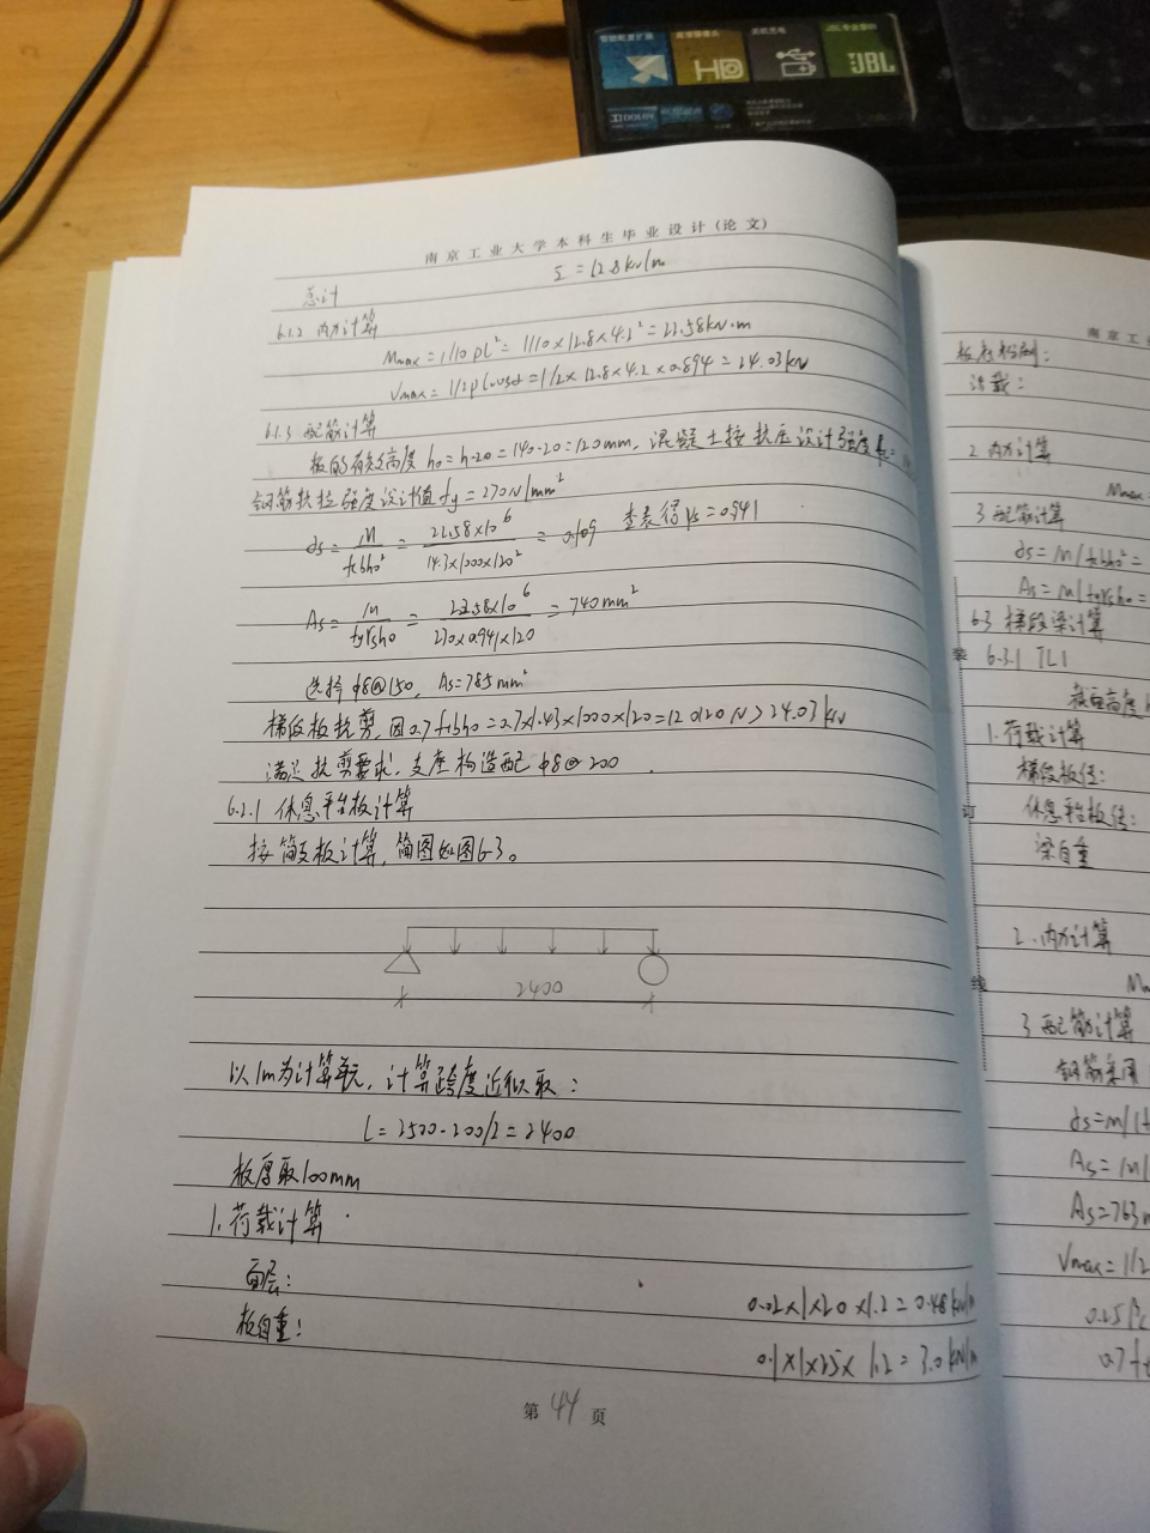 HD
JBL
DOLBY
南京工业大学本科生毕业设计(论文)
总计
Σ=12.8kN/m
6.1.2 内力计算
Mmax=1/10 pl²=1/10×12.8×4.2²=22.58kN·m
Vmax=1/2plcosα=1/2×12.8×4.2×0.894=24.03kN
6.1.3 配筋计算
板的有效高度 h₀=h-20=140-20=120mm, 混凝土按抗压设计强度
钢筋抗拉强度设计值 fy=270N/mm²
αs=M/fcbh₀²=22.58×10⁶/14.3×1000×120²=0.109 查表得γs=0.941
As=M/fyγsh₀=22.58×10⁶/270×0.941×120=740mm²
选择 φ8@150, As=785mm²
梯段板抗剪, 因0.7ftbh₀=0.7×1.43×1000×120=120120N>24.03kN
满足抗剪要求. 支座构造配 φ8@200
6.2.1 休息平台板计算
按简支板计算, 简图如图6-3。
2400
以1m为计算单元, 计算跨度近似取:
l=2500-200/2=2400
板厚取100mm
1.荷载计算
面层: 0.02×1×20×1.2=0.48kN/m
板自重: 0.1×1×25×1.2=3.0kN/m
第44页
南京工
活载:
2 内力计算
Mmax=
3 配筋计算
αs=M/fcbh₀²=
As=M/fyγsh₀=
6.3 梯段梁计算
装 6.3.1 TL1
截面高度
1.荷载计算
梯段板传:
订 休息平台板传:
梁自重
2.内力计算
线
3 配筋计算
钢筋采用
αs=M/
As=M/
As=763
Vmax=1/2
0.25βc
0.7f